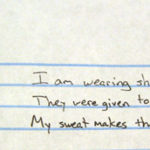 I am wearing sh
They were given to
My sweat makes th